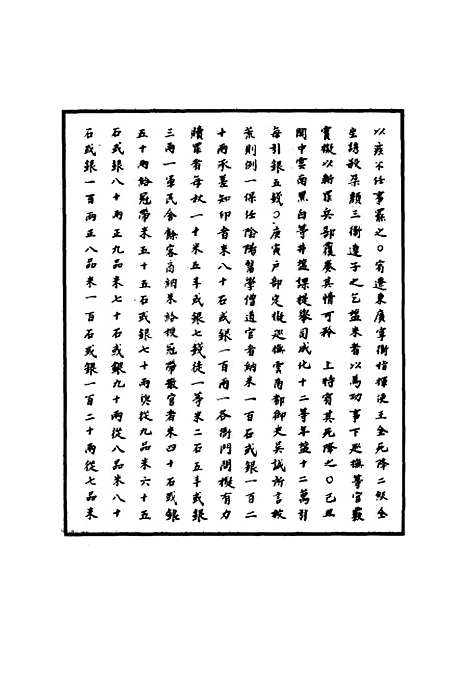 以疾不任事罷之○宥遼東廣寧衛指揮使王全死降二級全
坐誘殺朵顏三衛達子之乞鹽米者以為功事下巡撫等官覈
實擬以斬罪兵部覆奏其情可矜 上特宥其死降之○己丑
開中雲南黑白等井鹽課提舉司成化十二等年鹽十二萬引
每引銀五錢○庚寅戶部定擬巡撫雲南都御史吳誠所言救
荒則例一保任陰陽醫學僧道官者納米一百石或銀一百二
十兩承差知印者米八十石或銀一百兩一各衙門問擬有力
贖罪者每杖一十米五斗或銀七錢徒一等米二石五斗或銀
三兩一軍民舍餘客商納米給授冠帶散官者米四十石或銀
五十兩給冠帶米五十五石或銀七十兩與從九品米六十五
石或銀八十兩正九品米七十石或銀九十兩從八品米八十
石或銀一百兩正八品米一百石或銀一百二十兩從七品米